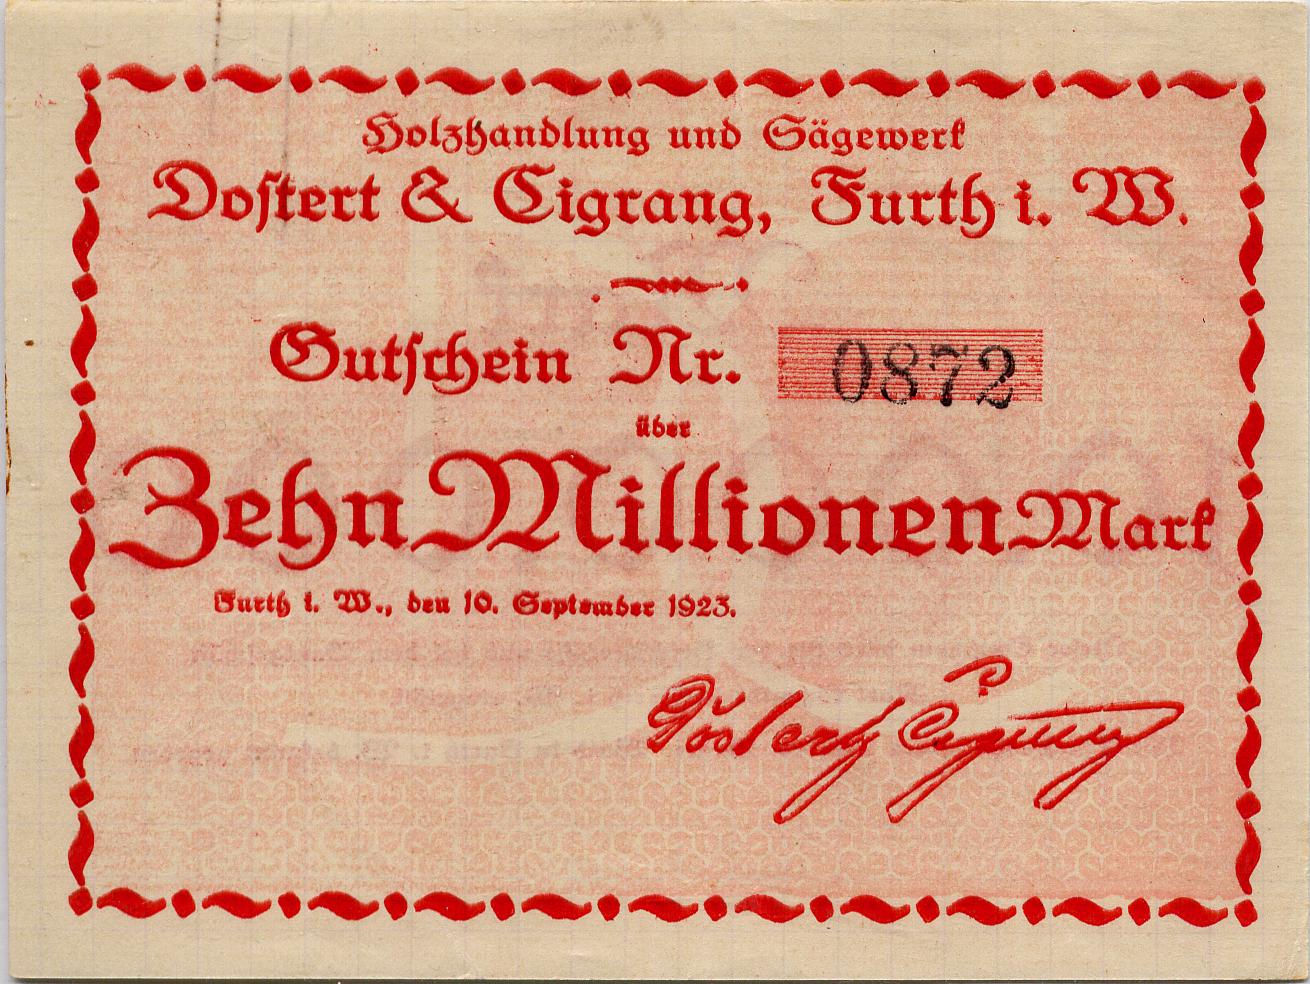 Holzhandlung und Sägewerk
Dostert & Cigrang, Furth i. W.
Gutschein Nr. 0872
über
Zehn Millionen Mark
Furth i. W., den 10. September 1923.
Dostert Cigrang